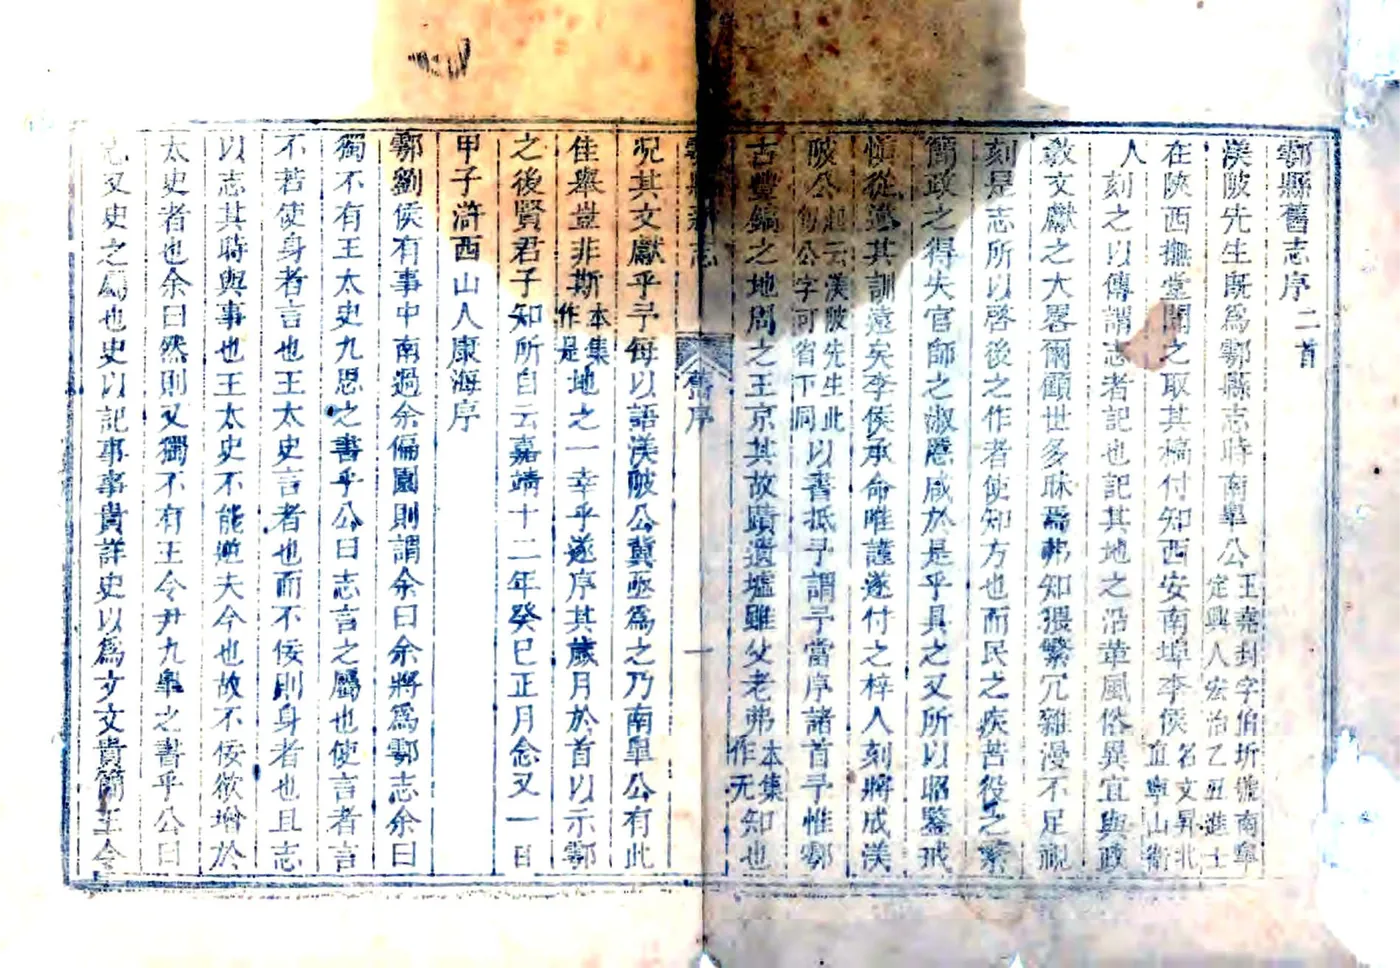 鄠縣舊志序二首
渼陂先生既爲鄠縣志時南臯公王嘉封字伯圻號南寧定興人宏治乙丑進士
在陝西撫臺聞之取其槁付知西安南埠李侯名文昇北直寧山衛
人刻之以傳謂志者記也記其地之沿革風俗異宜與政
敎文獻之大畧爾顧世多昧焉弗知猥繁冗雜漫不足視
刻是志所以啓後之作者使知方也而民之疾苦役之繁
簡政之得失官師之淑慝咸於是乎具之又所以昭鑒戒
愼從違其訓遠矣李侯承命唯謹遂付之梓人刻將成渼
陂公起云渼陂先生此公字可省下同以書抵予謂予當序諸首予惟鄠
古豐鎬之地周之王京其故蹟遺墟雖父老弗本集作无知也
鄠縣新志
舊序
一
况其文獻乎予每以語渼陂公冀亟爲之乃南臯公有此
佳舉豈非斯本集作是地之一幸乎遂序其歲月於首以示鄠
之後賢君子知所自云嘉靖十二年癸巳正月念又一日
甲子滸西山人康海序
鄠劉侯有事中南過余偏園則謂余曰余將爲鄠志余曰
獨不有王太史九思之書乎公曰志言之屬也使言者言
不若使身者言也王太史言者也而不佞則身者也且志
以志其時與事也王太史不能逆夫今也故不佞欲增於
太史者也余曰然則又獨不有王令尹九臯之書乎公曰
志又史之屬也史以記事事貴詳史以爲文文貴簡王令